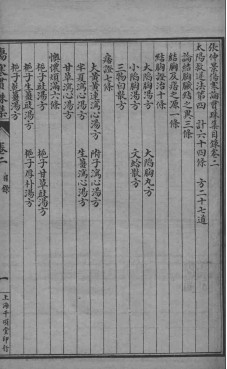 張仲景傷寒論貫珠集目錄卷二
太陽救逆法第四　計六十四條　方二十七道
論結胸臟結之異三條
結胸及痞之源一條
結胸證治十條
大陷胸湯方　大陷胸丸方
小陷胸湯方　文蛤散方
三物白散方
痞證七條
大黃黃連瀉心湯方　附子瀉心湯方
半夏瀉心湯方　生薑瀉心湯方
甘草瀉心湯方
懊憹煩滿六條
梔子豉湯方　梔子甘草豉湯方
梔子生薑豉湯方　梔子厚朴湯方
梔子乾薑湯方
傷寒貫珠集
卷二
目錄
一
上海千頃堂印行